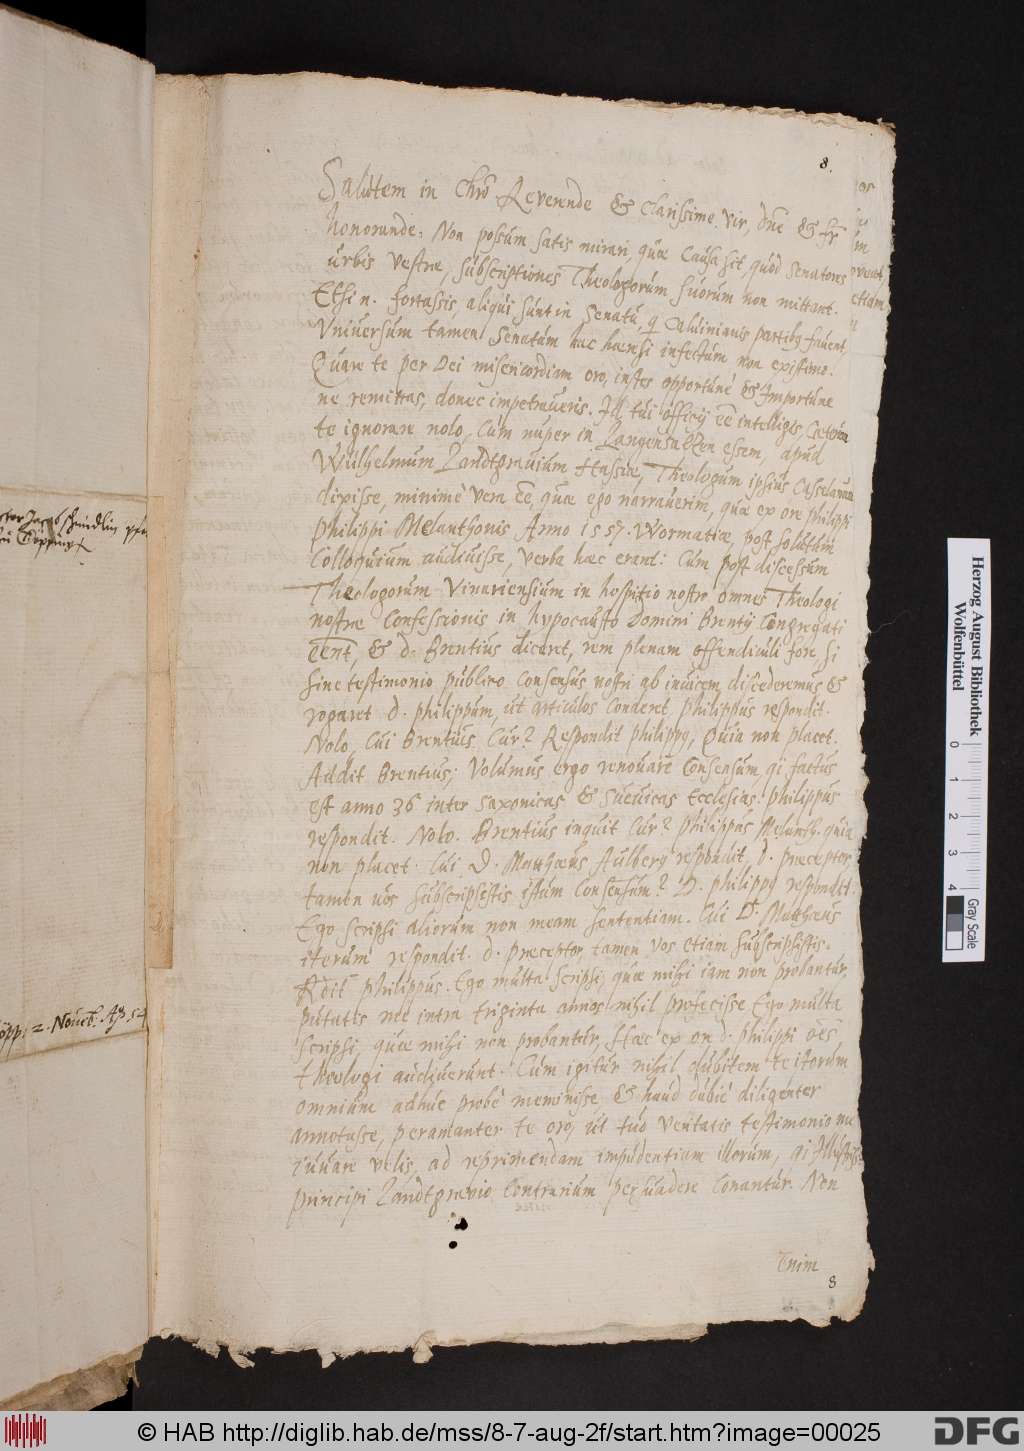 8.
Salutem in Chrō Reverende & Clarissime vir, dn̄e & fr̄
honorande: Non possum satis mirari, quæ Causa sit, quod Senatores
urbis vestræ, subscriptiones Theologorum suorum non mittant.
Etsi n. fortassis, aliqui sunt in Senatu, q̨ Caluinianis partibꝫ fauent,
Vniuersum tamen Senatum hac hæresi infectum non existimo.
Quare te per Dei misericordiam oro, instes opportunè & Importune
ne remittas, donec impetraueris. Ill tui officij eē intelligis, Cæterum
te ignorare nolo, Cum nuper in Langensaltzen essem, apud
Wilhelmum Landtgrauium Hassiæ, Theologum ipsius Casselanum
dixisse, minimè vera eē, quæ ego narrauerim, quæ ex ore philippi
Philippi Melanthonis Anno 1557. Wormatiæ, post solutum
Colloquium audiuisse, verba hæc erant: Cum post discessum
Theologorum Vinariensium in hospitio nostro omnes Theologi
nostræ Confessionis in hypocausto Domini Brentij Congregati
eēnt, & d. Brentius diceret, rem plenam offendiculi fore si
sine testimonio publico Consensus nostri ab inuicem discederemus &
rogaret d. philippum, ut articulos Conderet, philippus respondit.
Nolo, Cui Brentius, Cur? Respondit philippꝫ, Quia non placet.
Addit Brentius; Volumus ergo renouare Consensum, qi factus
est anno 36 inter Saxonicas & Sueuicas Ecclesias. Philippus
respondit. Nolo. Brentius inquit Cur? Philippus Melanth. quia
non placet. Cui, D. Matthæus Aulberg respondit, d. præceptor
tamen uos subscripsistis istum Consensum? D. philippꝫ respondit:
Ego scripsi aliorum non meam sententiam. Cui D. Matthæus
iterum respondit. d. præceptor, tamen vos etiam subscripsistis.
Philippus. Ego multa scripsi, quæ mihi iam non probantur,
putatis me intra triginta annos nihil profecisse Ego multa
scripsi, quæ mihi non probantur, Hæc ex ore d. philippi oēs
theologi audiuerunt. Cum igitur nihil dubitem te istorum
omnium adhuc probè meminisse, & haud dubiè diligenter
annotasse, peramanter te oro, ut tuo veritatis testimonio me
iuuare velis, ad reprimendam impudentiam illorum, qi Illustriss:
principi Landtgrauio Contrarium persuadere Conantur. Non
Enim
8
Herzog August Bibliothek
Wolfenbüttel
0 1 2 3 4
Gray Scale
© HAB http://diglib.hab.de/mss/8-7-aug-2f/start.htm?image=00025
DFG